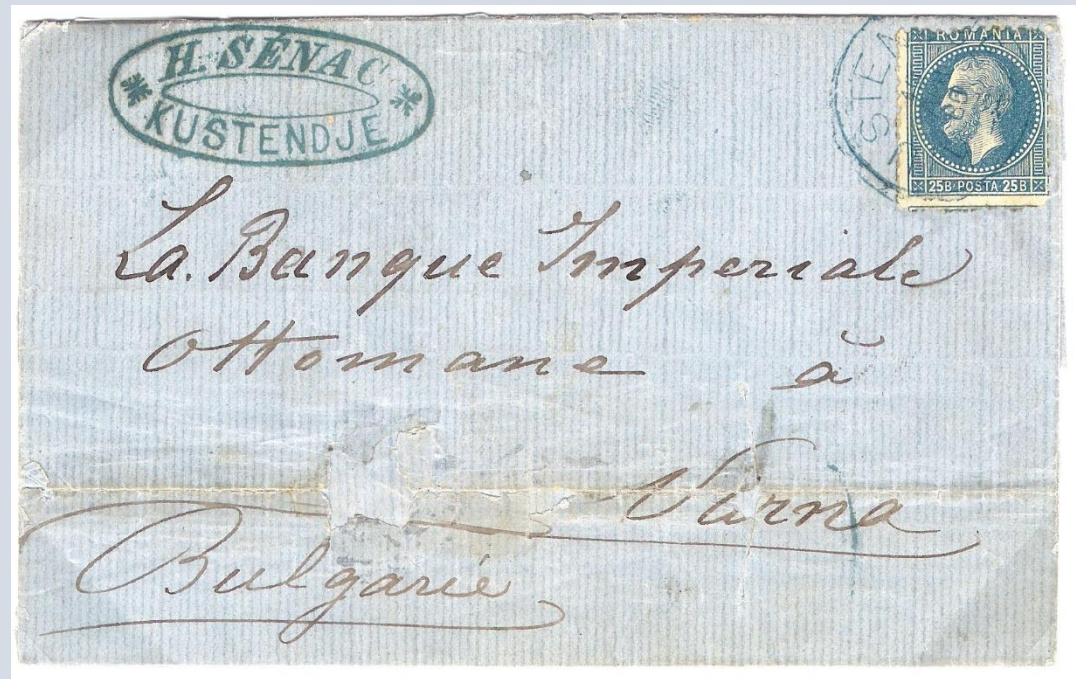 H. SÉNAC
KUSTENDJE
ROMANIA
25B POSTA 25B
La. Banque Imperiale
Ottomane à
Varna
Bulgarie